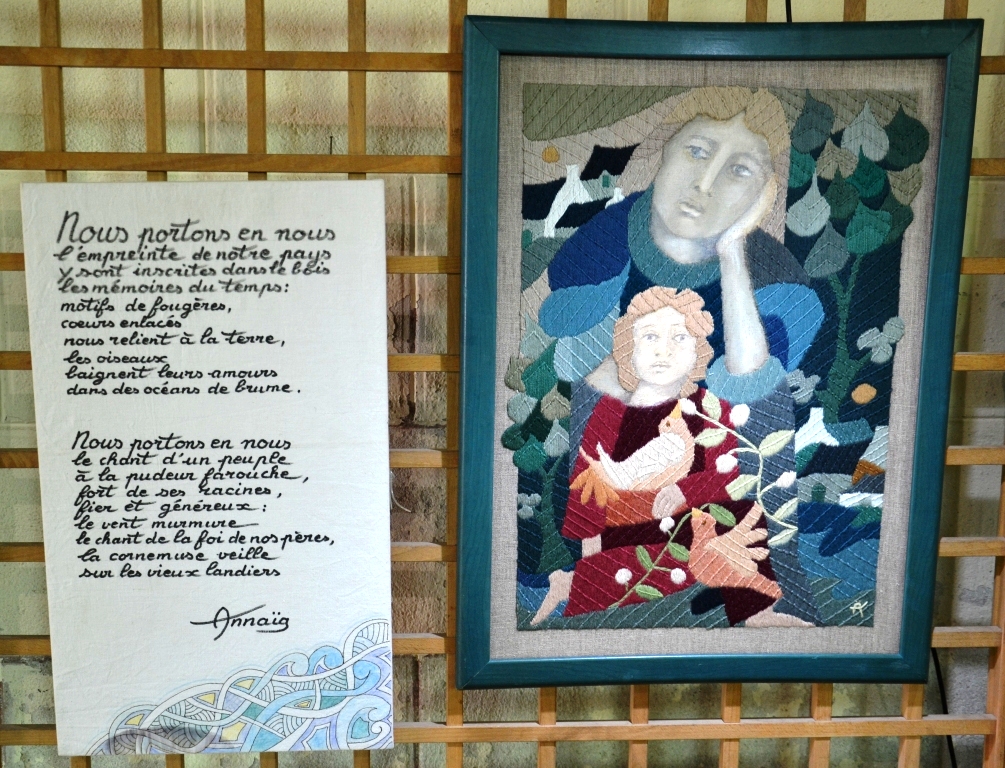 Nous portons en nous
l'empreinte de notre pays
y sont inscrites dans le bois
les mémoires du temps :
motifs de fougères,
coeurs enlacés
nous relient à la terre,
les oiseaux
baignent leurs amours
dans des océans de brume.
Nous portons en nous
le chant d'un peuple
à la pudeur farouche,
fort de ses racines,
fier et généreux :
le vent murmure
le chant de la foi de nos pères,
la cornemuse veille
sur les vieux landiers
Annaïg